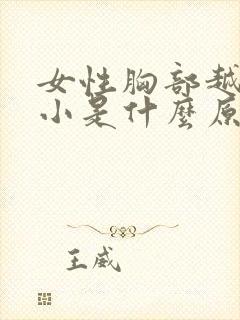 女性胸部越
小是什麼原
王威